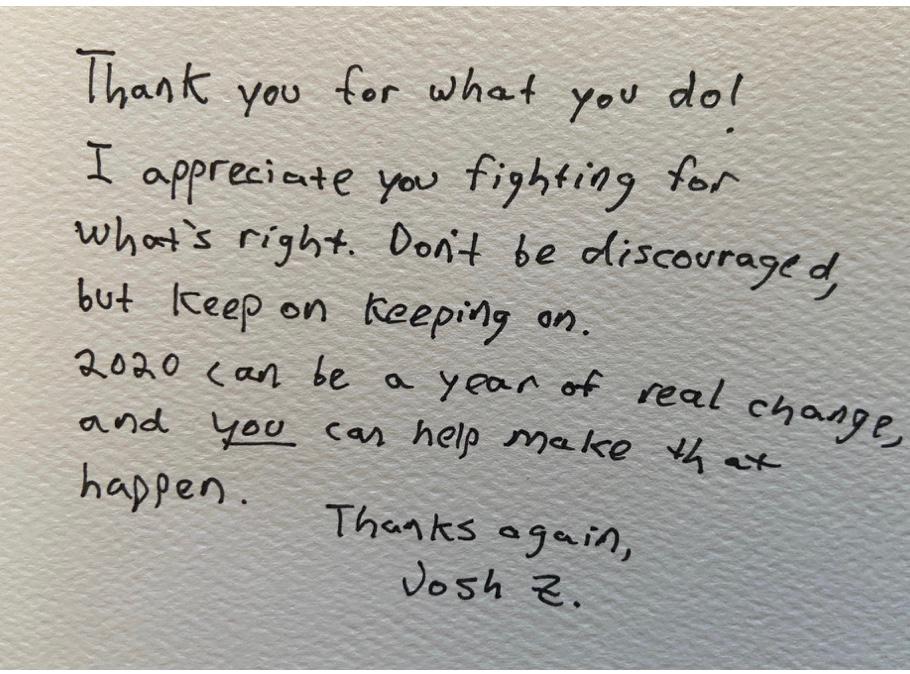 Thank you for what you do!
I appreciate you fighting for
what's right. Don't be discouraged,
but keep on keeping on.
2020 can be a year of real change,
and you can help make that
happen.
Thanks again,
Josh Z.